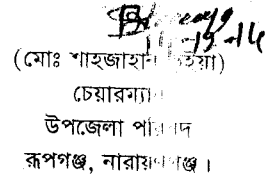 (মোঃ শাহজাহান ভূঁইয়া)
চেয়ারম্যান
উপজেলা পরিষদ
রূপগঞ্জ, নারায়ণগঞ্জ।